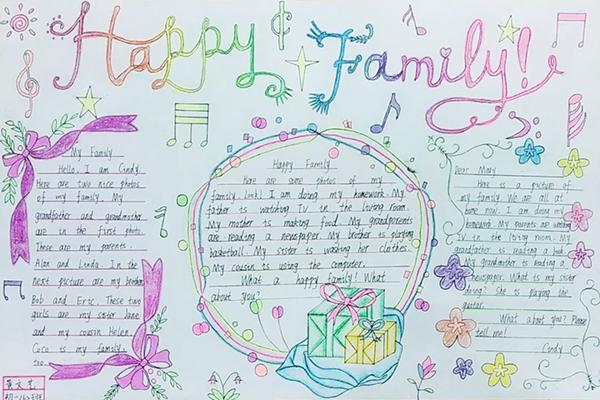 Happy Family!
My Family
Hello, I am Cindy.
Here are two nice photos
of my family. My
grandfather and grandmother
are in the first photo.
These are my parents.
Alan and Linda. In the
next picture are my brothers
Bob and Eric. These two
girls are my sister Jane
and my cousin Helen.
Coco is my family,
too.
Happy Family
Here are some photos of my
family. Look! I am doing my homework. My
father is watching TV in the living room.
My mother is making food. My grandparents
are reading a newspaper. My brother is playing
basketball. My sister is washing her clothes.
My cousin is using the computer.
What a happy family! What
about you?
Dear Mary
Here is a picture of
my family. We are all at
home now. I am doing my
homework. My parents are watching
TV in the living room. My
grandfather is reading a book.
My grandmother is reading a
newspaper. What is my sister
doing? She is playing the
guitar.
What about you? Please
tell me!
Cindy
黄文艺